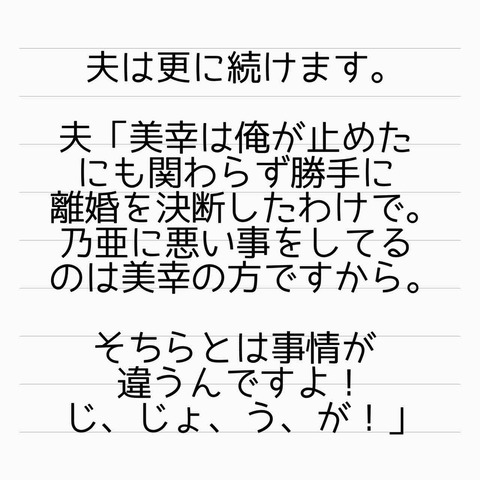 夫は更に続けます。
夫「美幸は俺が止めた
にも関わらず勝手に
離婚を決断したわけで。
乃亜に悪い事をしてる
のは美幸の方ですから。
そちらとは事情が
違うんですよ！
じ、じょ、う、が！」